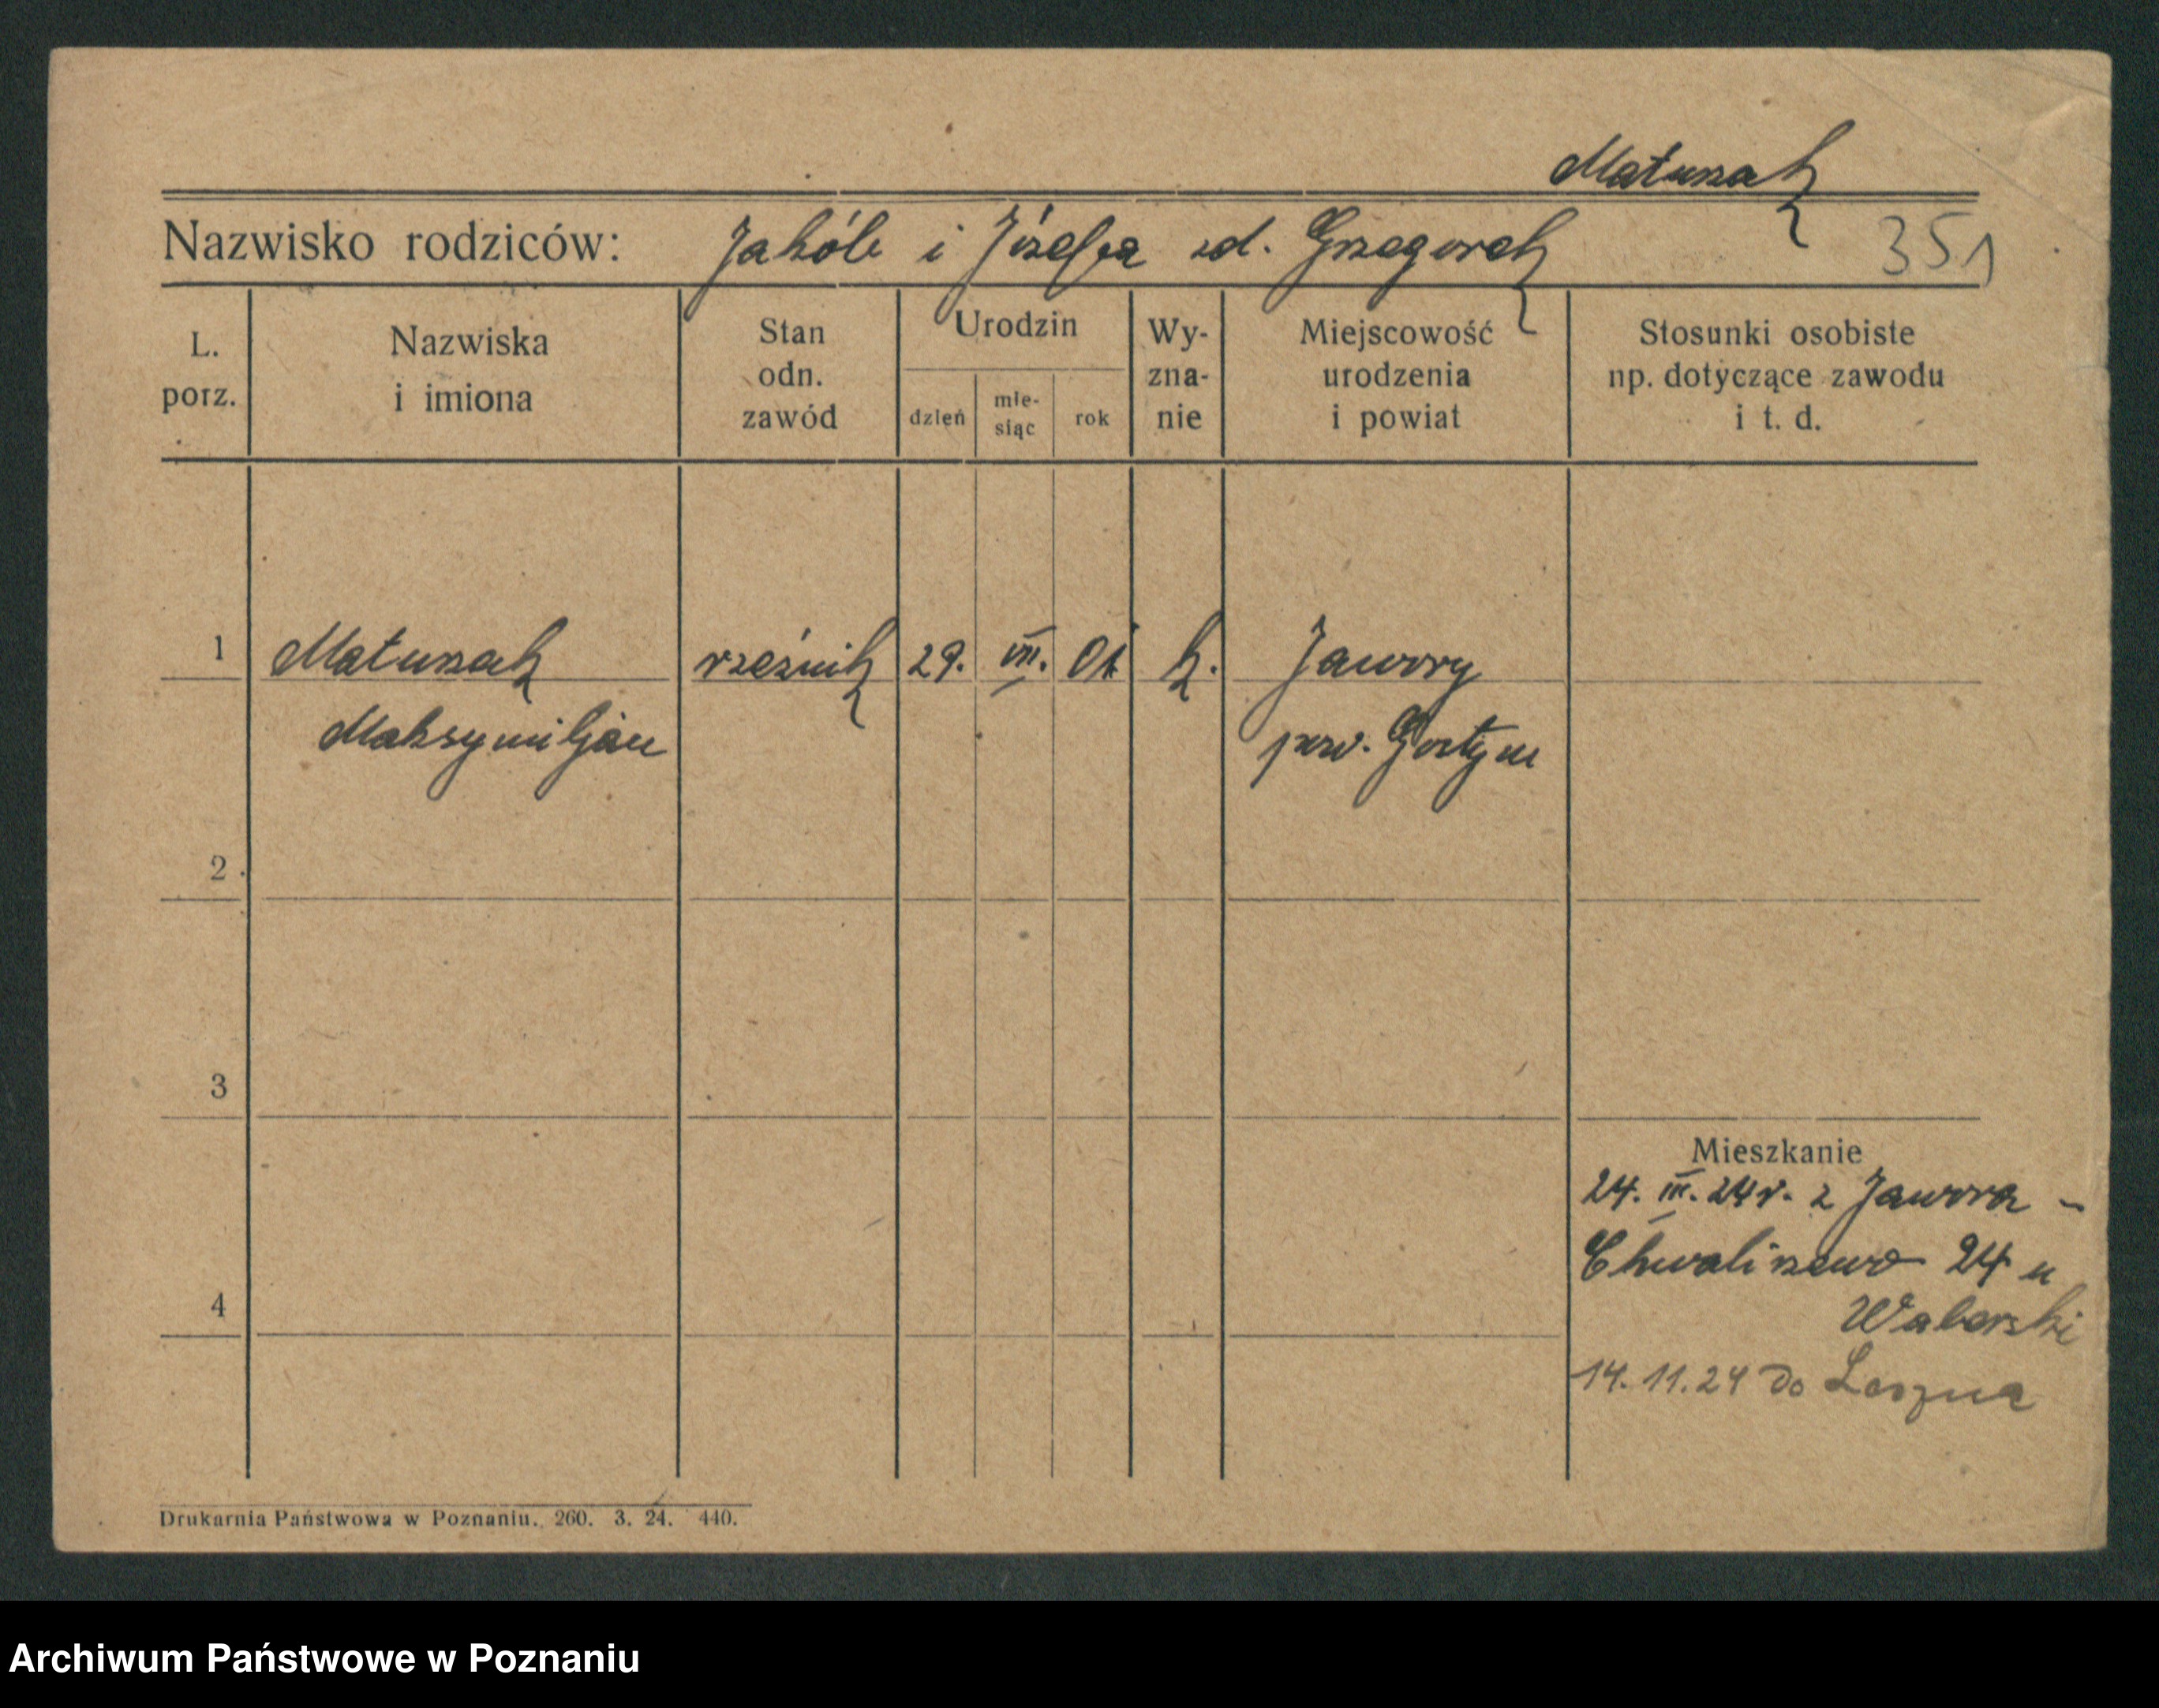 Matuszak
Nazwisko rodziców: Jakób i Józefa zd. Grzegorek
351
L. porz.
Nazwiska i imiona
Stan odn. zawód
Urodzin
dzień
mie-siąc
rok
Wy-zna-nie
Miejscowość urodzenia i powiat
Stosunki osobiste np. dotyczące zawodu i t. d.
1 Matuszak rzeźnik 29. VII. 01 k. Jawory
Maksymiljan pow. Gostyń
2
3
Mieszkanie
24. III. 24 r. z Jawora -
Chwaliszewo 24 u
4
Waberski
14. 11. 24 do Leszna
Drukarnia Państwowa w Poznaniu. 260. 3. 24. 440.
Archiwum Państwowe w Poznaniu